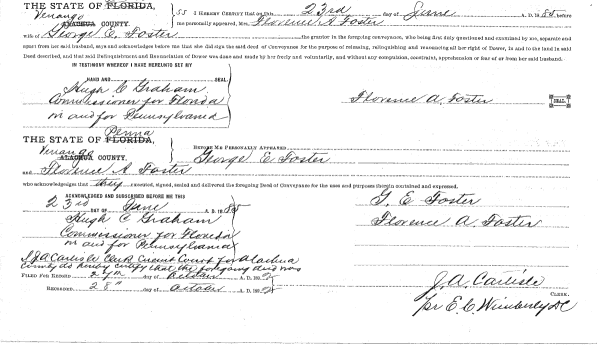 THE STATE OF FLORIDA,
Venango
ALACHUA COUNTY.
SS I HEREBY CERTIFY that on this 23rd day of June A. D. 1885 before
me personally appeared, Mrs. Florence A Foster
wife of George E. Foster the grantor in the foregoing conveyance, who being first duly questioned and examined by me, separate and
apart from her said husband, says and acknowledges before me that she did sign the said deed of Conveyance for the purpose of releasing, relinquishing and renouncing all her right of Dower, in and to the land in said
Deed described, and that said Relinquishment and Renunciation of Dower was done and made by her freely and voluntarily, and without any compulsion, constraint, apprehension or fear of or from her said husband.
IN TESTIMONY WHEREOF I HAVE HEREUNTO SET
HAND AND SEAL
Hugh C Graham
Commissioner for Florida
in and for Pennsylvania
Florence A. Foster SEAL.
Penna
THE STATE OF FLORIDA,
Venango
ALACHUA COUNTY.
BEFORE ME PERSONALLY APPEARED
George E Foster
and Florence A Foster
who acknowledges that they executed, signed, sealed and delivered the foregoing Deed of Conveyance for the uses and purposes therein contained and expressed.
ACKNOWLEDGED AND SUBSCRIBED BEFORE ME THIS
23rd DAY OF June A. D. 1885
Hugh C Graham
Commissioner for Florida
in and for Pennsylvania
G. E Foster
Florence A. Foster
I J A Carlisle Clerk Circuit Court for Alachua
County do hereby certify that the foregoing deed was
FILED FOR RECORD 27th day of October A. D. 188
RECORDED 28" day of October A. D. 188
J. A. Carlisle
CLERK.
pr E. C. Wimberly DC